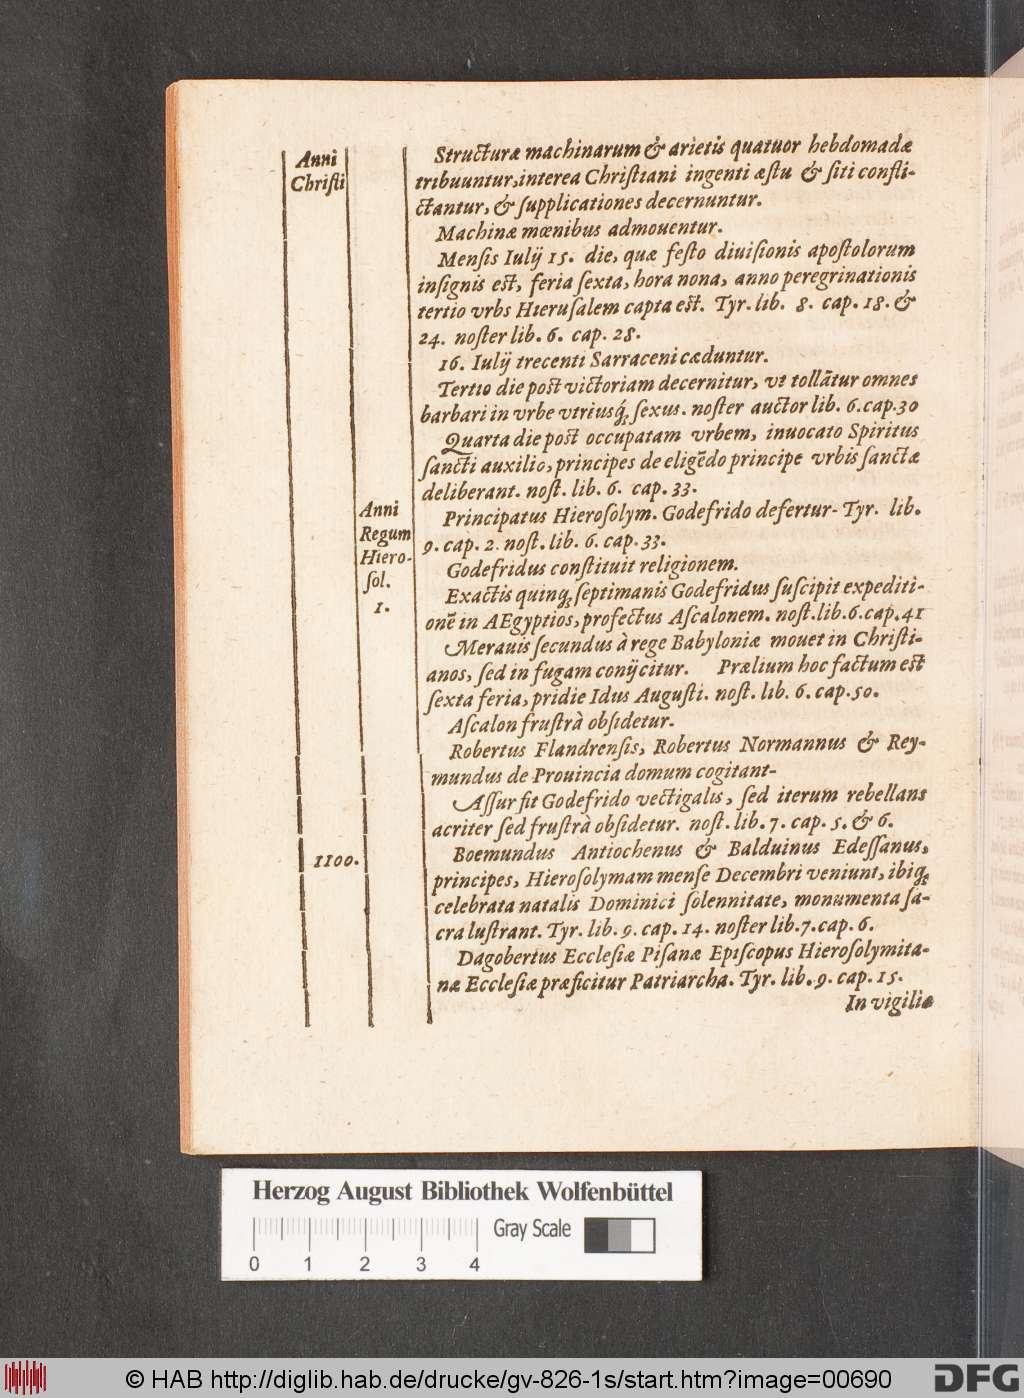 Anni
Chriſti
Structuræ machinarum & arietis quatuor hebdomadæ
tribuuntur, interea Chriſtiani ingenti æſtu & ſiti confli-
ctantur, & ſupplicationes decernuntur.
Machinæ mœnibus admouentur.
Menſis Iulij 15. die, quæ feſto diuiſionis apoſtolorum
inſignis eſt, feria ſexta, hora nona, anno peregrinationis
tertio vrbs Hieruſalem capta eſt. Tyr. lib. 8. cap. 18. &
24. noſter lib. 6. cap. 28.
16. Iulij trecenti Sarraceni cæduntur.
Tertio die poſt victoriam decernitur, vt tollātur omnes
barbari in vrbe vtriusq́; ſexus. noſter auctor lib. 6. cap. 30
Quarta die poſt occupatam vrbem, inuocato Spiritus
ſancti auxilio, principes de eligēdo principe vrbis ſanctæ
deliberant. noſt. lib. 6. cap. 33.
Anni
Regum
Hiero-
ſol.
1.
Principatus Hieroſolym. Godefrido defertur- Tyr. lib.
9. cap. 2. noſt. lib. 6. cap. 33.
Godefridus conſtituit religionem.
Exactis quinq; ſeptimanis Godefridus ſuſcipit expediti-
onē in AEgyptios, profectus Aſcalonem. noſt. lib. 6. cap. 41
Merauis ſecundus à rege Babyloniæ mouet in Chriſti-
anos, ſed in fugam conijcitur. Prælium hoc factum eſt
ſexta feria, pridie Idus Auguſti. noſt. lib. 6. cap. 50.
Aſcalon fruſtrà obſidetur.
Robertus Flandrenſis, Robertus Normannus & Rey-
mundus de Prouincia domum cogitant-
Aſſur fit Godefrido vectigalis, ſed iterum rebellans
acriter ſed fruſtrà obſidetur. noſt. lib. 7. cap. 5. & 6.
1100.
Boemundus Antiochenus & Balduinus Edeſſanus,
principes, Hieroſolymam menſe Decembri veniunt, ibiq;
celebrata natalis Dominici ſolennitate, monumenta ſa-
cra luſtrant. Tyr. lib. 9. cap. 14. noſter lib. 7. cap. 6.
Dagobertus Eccleſiæ Piſanæ Epiſcopus Hieroſolymita-
næ Eccleſiæ præficitur Patriarcha. Tyr. lib. 9. cap. 15.
In vigilia
Herzog August Bibliothek Wolfenbüttel
Gray Scale
0 1 2 3 4
© HAB http://diglib.hab.de/drucke/gv-826-1s/start.htm?image=00690
DFG